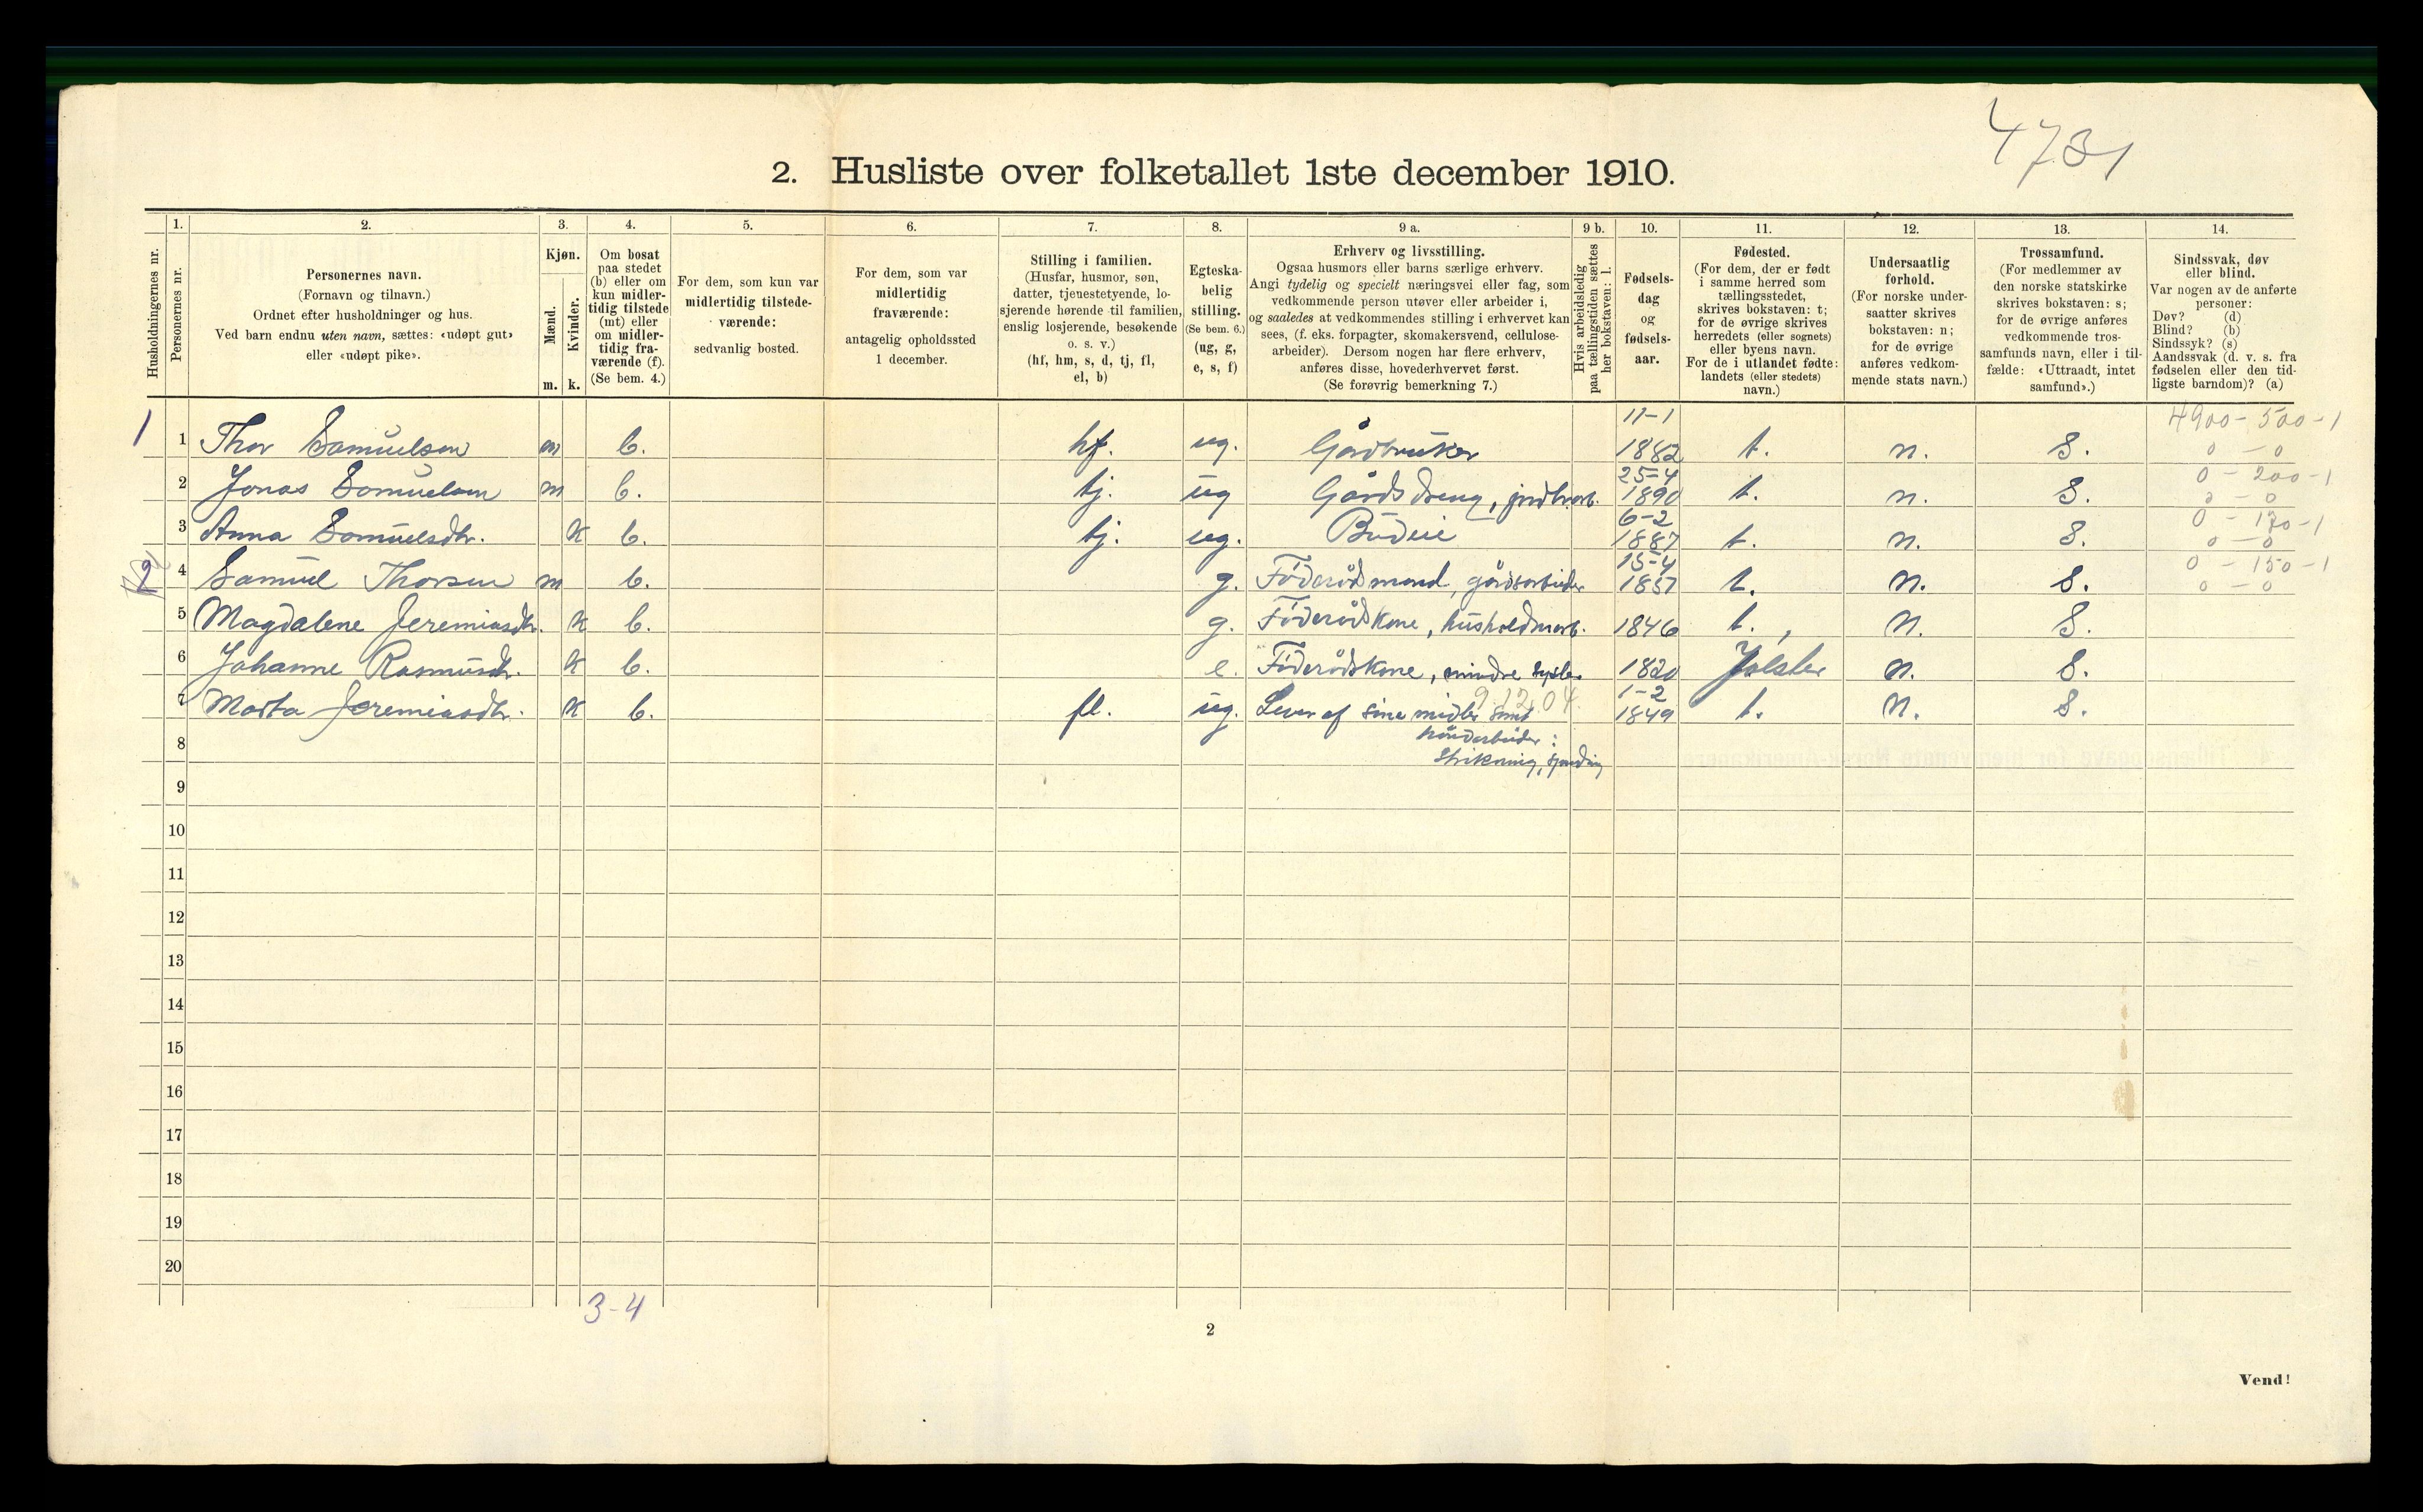 4731
2. Husliste over folketallet 1ste december 1910.
Husholdningernes nr.
1.
Personernes nr.
2.
Personernes navn.
(Fornavn og tilnavn.)
Ordnet efter husholdninger og hus.
Ved barn endnu uten navn, sættes: «udøpt gut»
eller «udøpt pike».
3.
Kjøn.
Mænd.
Kvinder.
m. k.
4.
Om bosat
paa stedet
(b) eller om
kun midler-
tidig tilstede
(mt) eller
om midler-
tidig fra-
værende (f).
(Se bem. 4.)
5.
For dem, som kun var
midlertidig tilstede-
værende:
sedvanlig bosted.
6.
For dem, som var
midlertidig
fraværende:
antagelig opholdssted
1 december.
7.
Stilling i familien.
(Husfar, husmor, søn,
datter, tjenestetyende, lo-
sjerende hørende til familien,
enslig losjerende, besøkende
o. s. v.)
(hf, hm, s, d, tj, fl,
el, b)
8.
Egteska-
belig
stilling.
(Se bem. 6.)
(ug, g,
e, s, f)
9 a.
Erhverv og livsstilling.
Ogsaa husmors eller barns særlige erhverv.
Angi tydelig og specielt næringsvei eller fag, som
vedkommende person utøver eller arbeider i,
og saaledes at vedkommendes stilling i erhvervet kan
sees, (f. eks. forpagter, skomakersvend, cellulose-
arbeider). Dersom nogen har flere erhverv,
anføres disse, hovederhvervet først.
(Se forøvrig bemerkning 7.)
9 b.
Hvis arbeidsledig
paa tællingstiden sættes
her bokstaven: l.
10.
Fødsels-
dag
og
fødsels-
aar.
11.
Fødested.
(For dem, der er født
i samme herred som
tællingsstedet,
skrives bokstaven: t;
for de øvrige skrives
herredets (eller sognets)
eller byens navn.
For de i utlandet fødte:
landets (eller stedets)
navn.)
12.
Undersaatlig
forhold.
(For norske under-
saatter skrives
bokstaven: n;
for de øvrige
anføres vedkom-
mende stats navn.)
13.
Trossamfund.
(For medlemmer av
den norske statskirke
skrives bokstaven: s;
for de øvrige anføres
vedkommende tros-
samfunds navn, eller i til-
fælde: «Uttraadt, intet
samfund».)
14.
Sindssvak, døv
eller blind.
Var nogen av de anførte
personer:
Døv? (d)
Blind? (b)
Sindssyk? (s)
Aandssvak (d. v. s. fra
fødselen eller den tid-
ligste barndom)? (a)
11-1 4900-500-1
1 1 Thor Samuelsen m b. hf. ug. Gårdbruker 1882 t. n. S. 0-0
25-4 0-200-1
2 Jonas Samuelsen m b. tj. ug Gårdsdreng, jordbrarb. 1890 t. n. S. 0-0
6-2 0-170-1
3 Anna Samuelsdtr. K b. tj. ug. Budeie 1887 t. n. S. 0-0
15-4 0-150-1
2 4 Samuel Thorsen m b. g. Föderådsmand, gårdsarbeider 1857 t. n. S. 0-0
5 Magdalene Jeremiasdtr. K b. g. Föderådskone, husholdnarb. 1846 t. n. S.
6 Johanne Rasmusdtr. K b. e. Föderådskone, mindre sysler 1820 Jølster n. S.
9.12.04. 1-2
7 Marta Jeremiasdtr. K b. fl. ug. Lever af sine midler samt 1849 t. n. S.
8 håndarbeider:
Strikning, spinding
9
10
11
12
13
14
15
16
17
18
19
20
3-4
2
Vend!